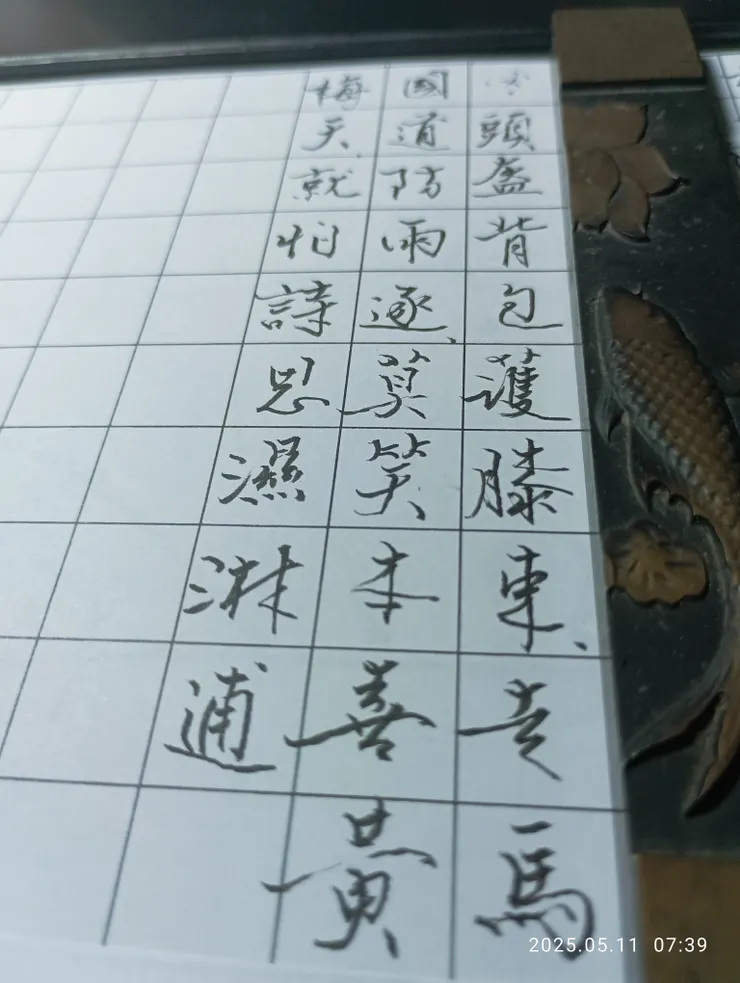 頭盔背包護膝束、走馬
國道防雨逐、莫笑本善黃
梅天、就怕詩思濕淋逋
2025.05.11 07:39